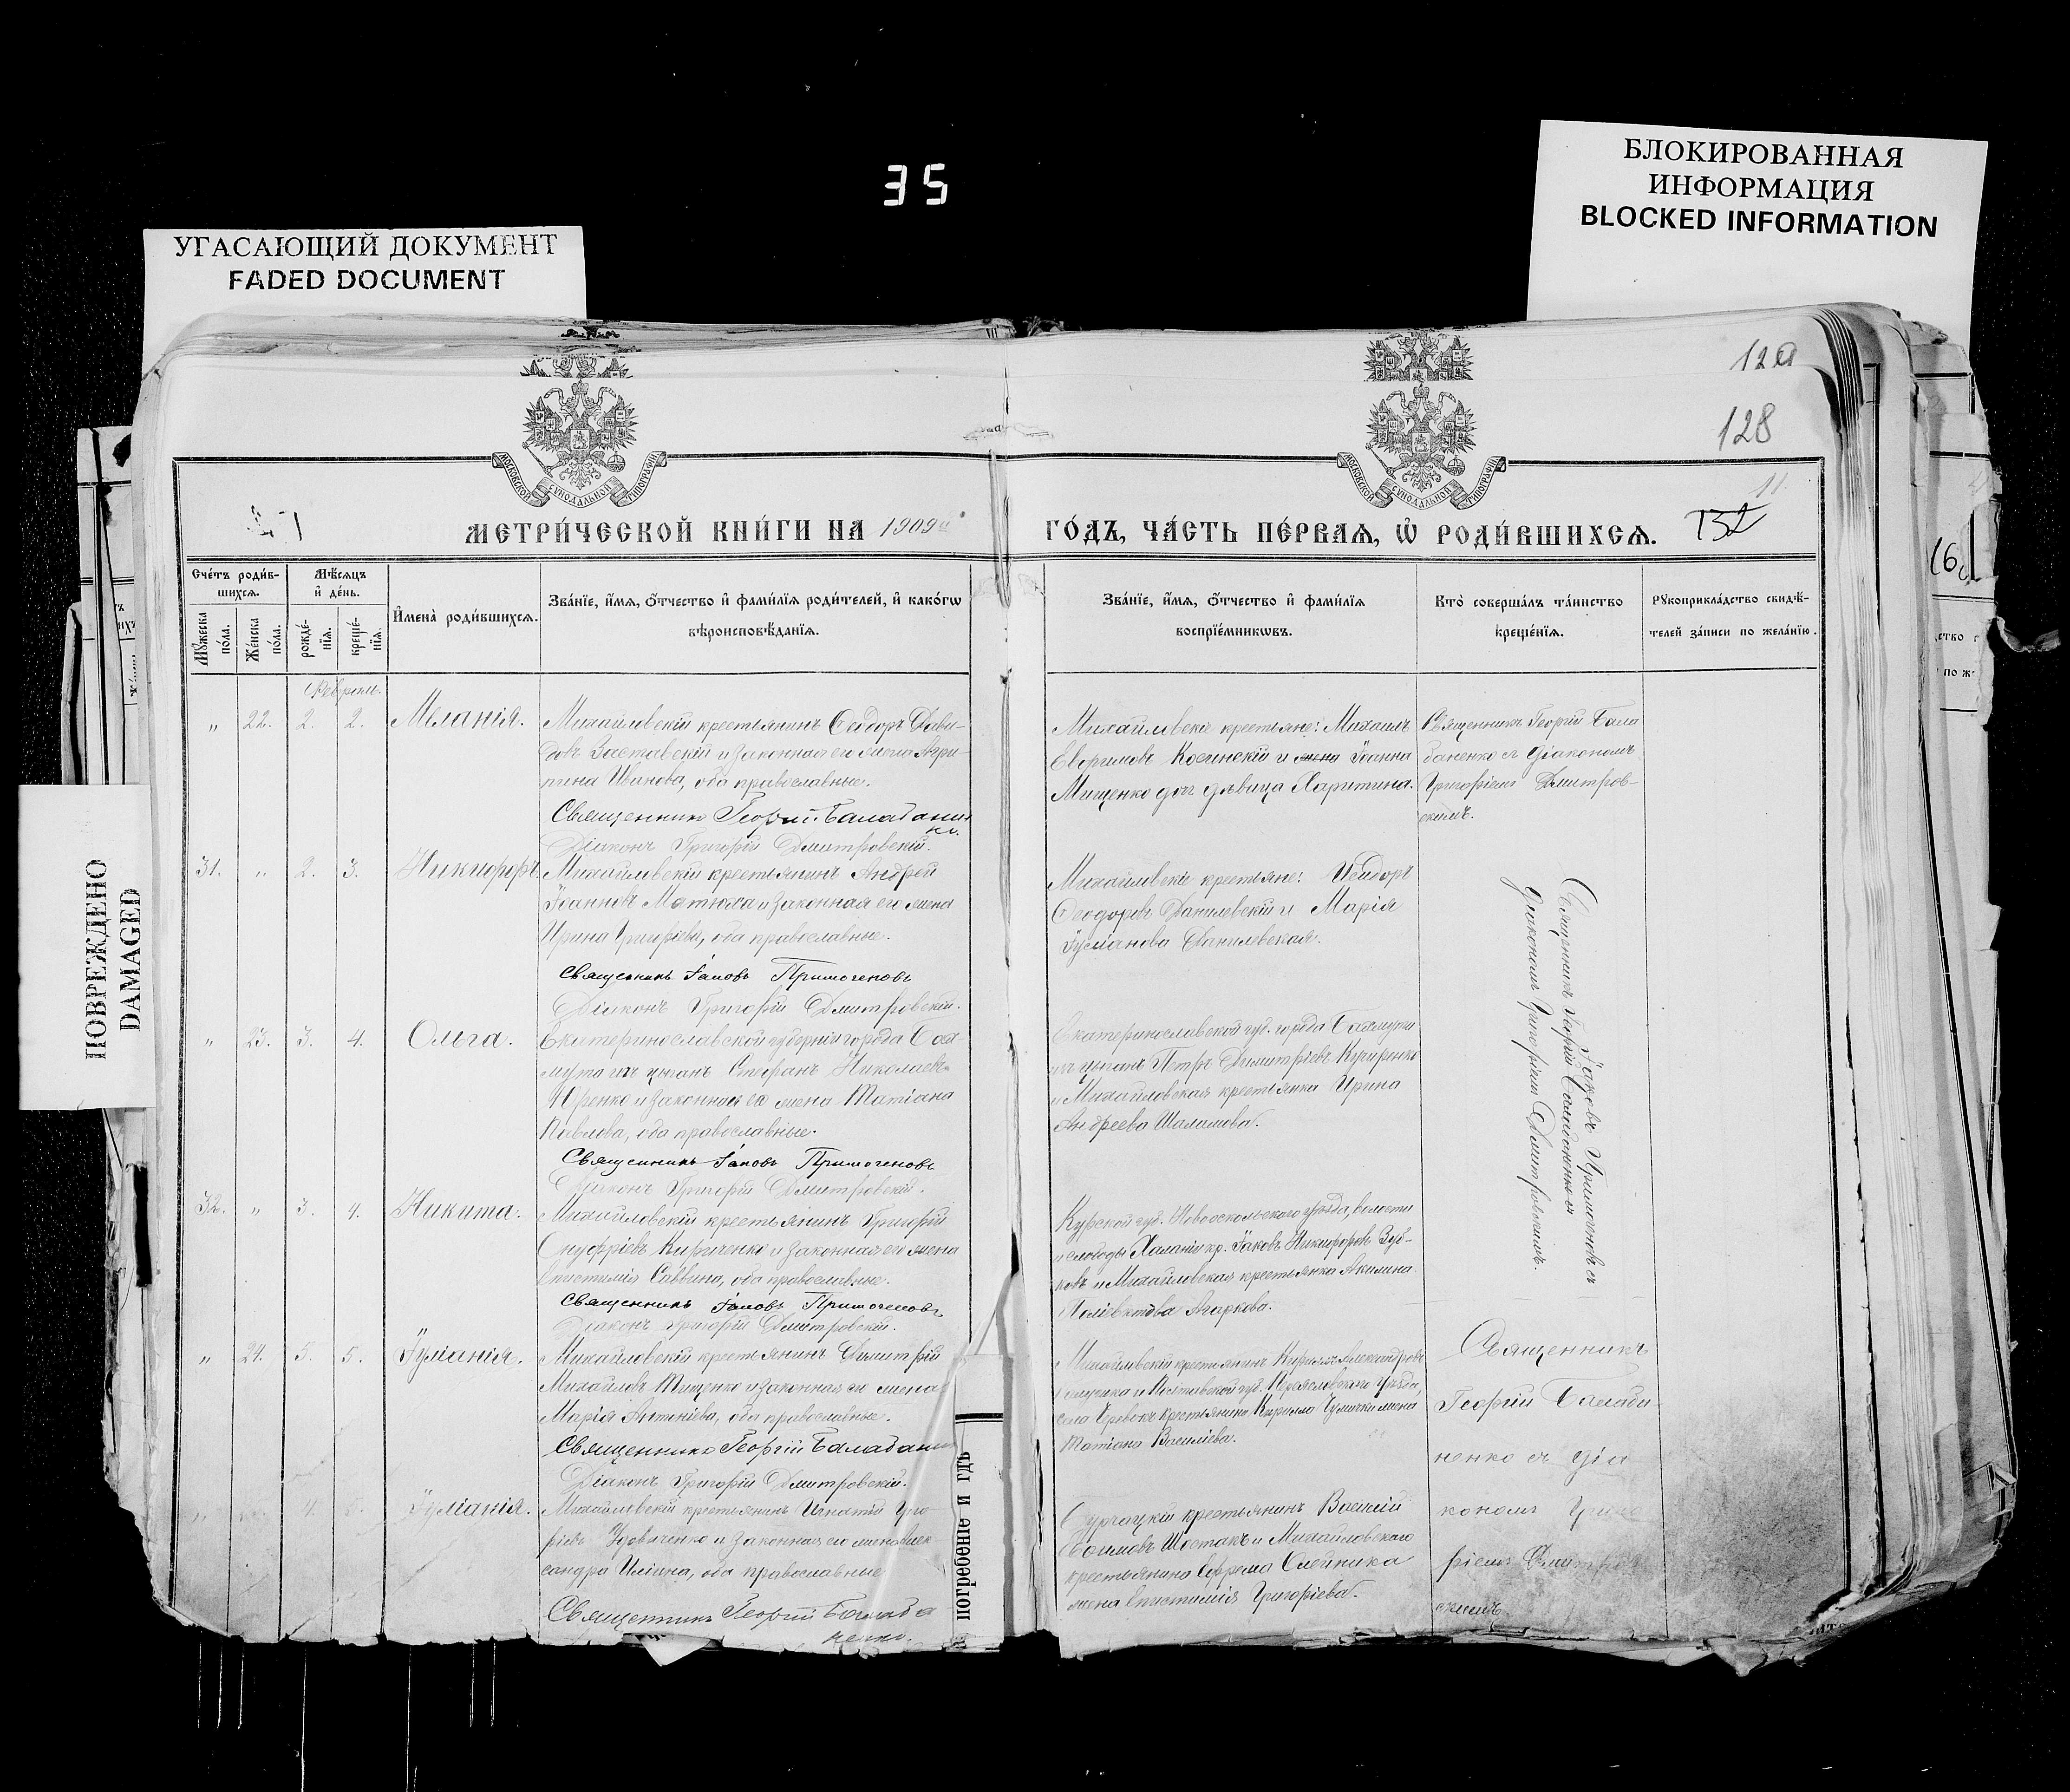 35
УГАСАЮЩИЙ ДОКУМЕНТ
FADED DOCUMENT
БЛОКИРОВАННАЯ
ИНФОРМАЦИЯ
BLOCKED INFORMATION
ПОВРЕЖДЕНО
DAMAGED
128
11
МОСКОВСКОЙ СѴНОДАЛЬНОЙ ТИПОГРАФІИ
МОСКОВСКОЙ СѴНОДАЛЬНОЙ ТИПОГРАФІИ
МЕТРИ́ЧЕСКОЙ КНИ́ГИ НА 1909й
ГО́ДЪ, ЧА́СТЬ ПЕ́РВАѦ, Ѽ РОДИ́ВШИХСѦ.
Сче́тъ роди́в-
шихсѧ.
Мѣ́сѧцъ
и҆ де́нь.
Мꙋ́жеска по́ла.
Же́нска по́ла.
рожде́-нїѧ.
креще́-нїѧ.
И҆мена̀ роди́вшихсѧ.
Зва́нїе, и҆́мѧ, ѻ҆́тчество и҆ фами́лїѧ роди́телей, и҆ како́гѡ
вѣроисповѣ́данїѧ.
Зва́нїе, и҆́мѧ, ѻ҆́тчество и҆ фами́лїѧ
воспрїе́мникѡвъ.
Кто̀ соверша́лъ та́инство
креще́нїѧ.
Рꙋкоприкла́дство свидѣ́-
телей за́писи по жела́нїю.
" 22. 2. 2. Меланія.
Михайловскій крестьянинъ Ѳеодоръ Дави-
довъ Заставскій и законная его жена Агри-
пина Иванова, оба православные.
Священникъ Георгій Балабанен
ко.
Діаконъ Григорій Дмитровскій.
Михайловскіе крестьяне: Михаилъ
Евфимовъ Косинскій и Іоанна
Мищенко доч дѣвица Харитина.
Священникъ Георгій Бала
баненко съ діакономъ
Григоріемъ Дмитров-
скимъ.
31. " 2. 3. Никифоръ.
Михайловскій крестьянинъ Андрей
Іоанновъ Матюха и законная его жена
Ирина Григорьева, оба православные.
Священникъ Іаковъ Примогеновъ
Діаконъ Григорій Дмитровскій.
Михайловскіе крестьяне: Исидоръ
Ѳеодоровъ Данилевскій и Марія
Іуліанова Данилевская.
Священникъ Георгій Балабаненко съ
Іаковъ Примогеновъ съ
діакономъ Григоріемъ Дмитровскимъ.
" 23. 3. 4. Ольга.
Екатеринославской губерніи города Бах-
мута изъ цыганъ Стефанъ Николаевъ
Юренко и законная его жена Татіана
Павлова, оба православные.
Священникъ Іаковъ Примогеновъ
Діаконъ Григорій Дмитровскій.
Екатеринославской губ. города Бахмута
изъ цыганъ Петръ Димитріевъ
и Михайловская крестьянка Ирина
Андреева Шаламова.
32. " 3. 4. Никита.
Михайловскій крестьянинъ Григорій
Онуфріевъ Кириченко и законная его жена
Епистимія Саввина, оба православные.
Священникъ Іаковъ Примогеновъ
Діаконъ Григорій Дмитровскій.
Курской губ. Новооскольскаго уѣзда, волости
и слободы Халани кр. Іаковъ Никифоровъ Зуб-
ковъ и Михайловская крестьянка Акилина
Поліевктова Агаркова.
" 24. 5. 5. Іуліанія.
Михайловскій крестьянинъ Димитрій
Михайловъ Тищенко и законная его жена
Марія Антоніева, оба православные.
Священникъ Георгій Балабанен
Діаконъ Григорій Дмитровскій.
Михайловскій крестьянинъ Кириллъ Александровъ
и Полтавской губ. Переяславскаго уѣзда,
села крестьянина Кирилла жена
Татіана Василіева.
Священникъ
Георгій Балаба
ненко съ діа
кономъ Григо
ріемъ Дмитров
скимъ
4. 5. Іуліанія.
Михайловскій крестьянинъ Игнатій Григо
ріевъ Удовиченко и законная его жена Алек
сандра Иліина, оба православные
Священникъ Георгій Балаба
ненко.
крестьянинъ Василій
Шостакъ и Михайловскаго
крестьянина Ефрема Олейника
жена Епистимія Григоріева.
погребеніе и гдѣ